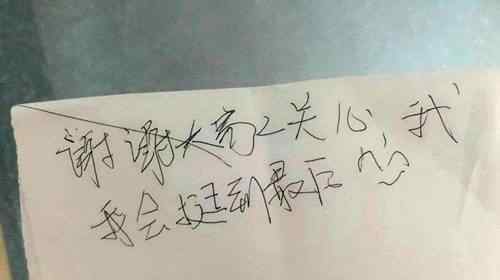 谢谢大关心 我
我会挺到最后